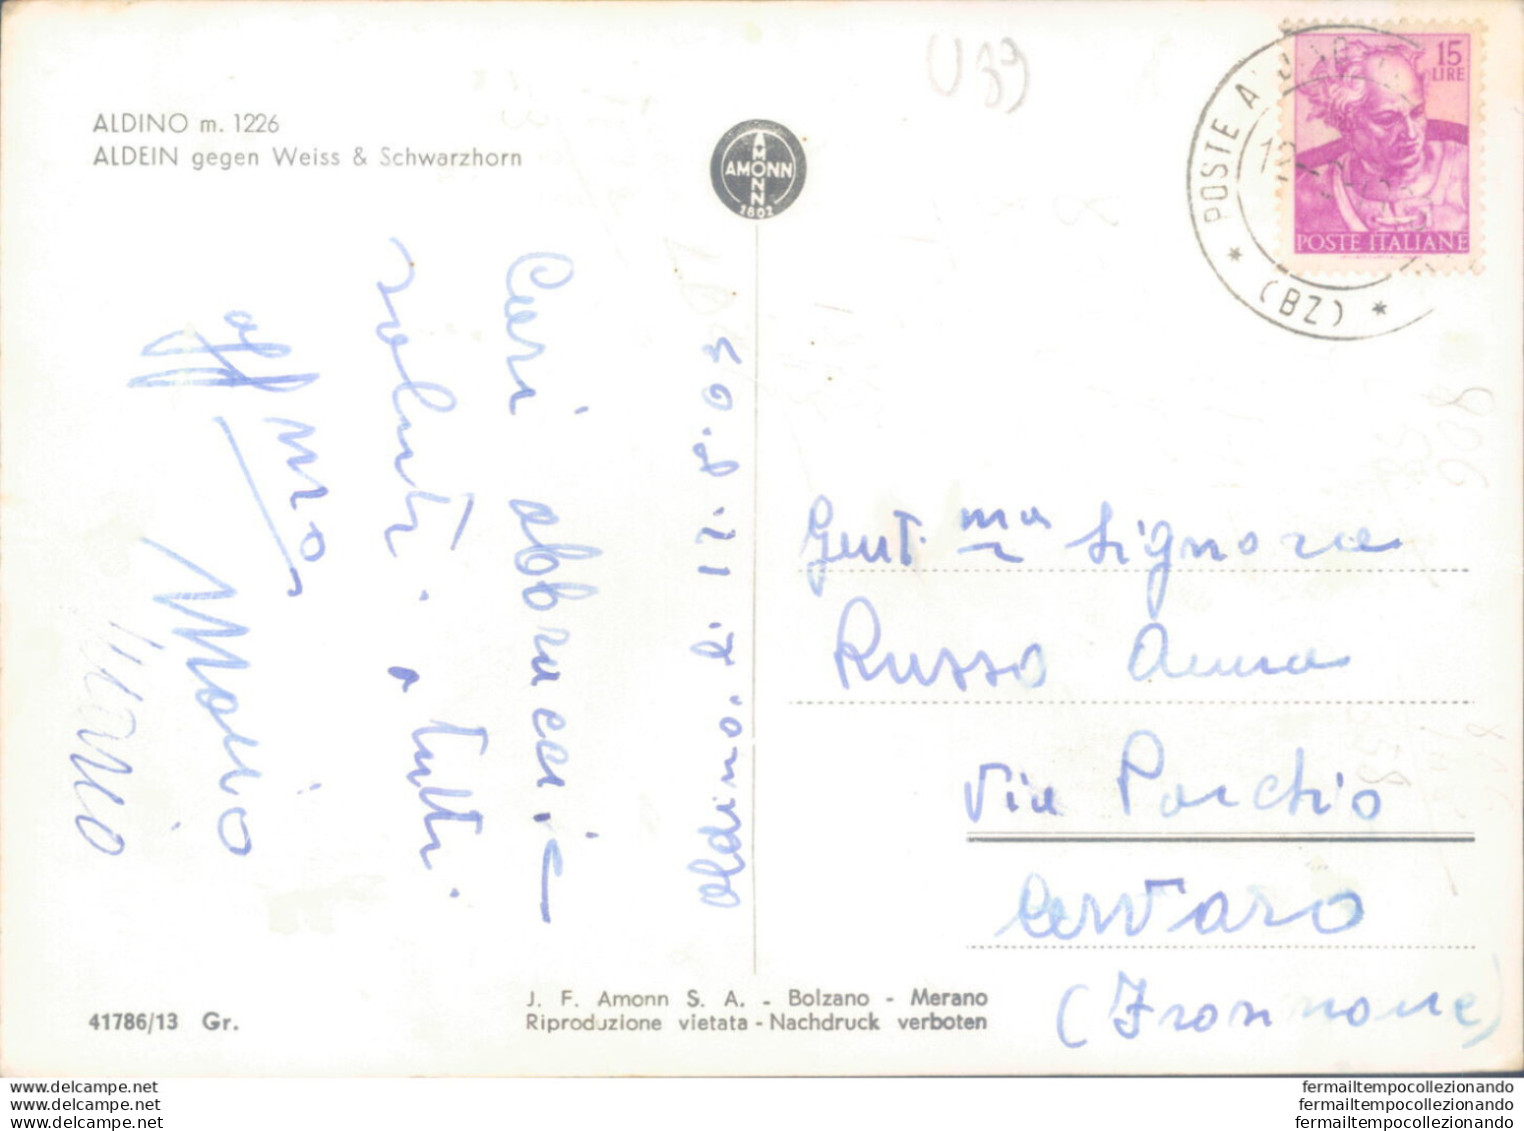 ALDINO m. 1226
ALDEIN gegen Weiss & Schwarzhorn
AMONN
AMONN
1802
U 89
15
LIRE
POSTE ITALIANE
* POSTE ALDINO
(BZ) *
Aldino. li 17.8.63
Cari abbracci e
saluti a tutti.
aff/mo
Mario
Mario
Gent.ma Signora
Russo Anna
Via Porchio
Cervaro
(Frosinone)
41786/13 Gr.
J. F. Amonn S. A. - Bolzano - Merano
Riproduzione vietata - Nachdruck verboten
www.delcampe.net
www.delcampe.net
www.delcampe.net
fermailtempocollezionando
fermailtempocollezionando
fermailtempocollezionando